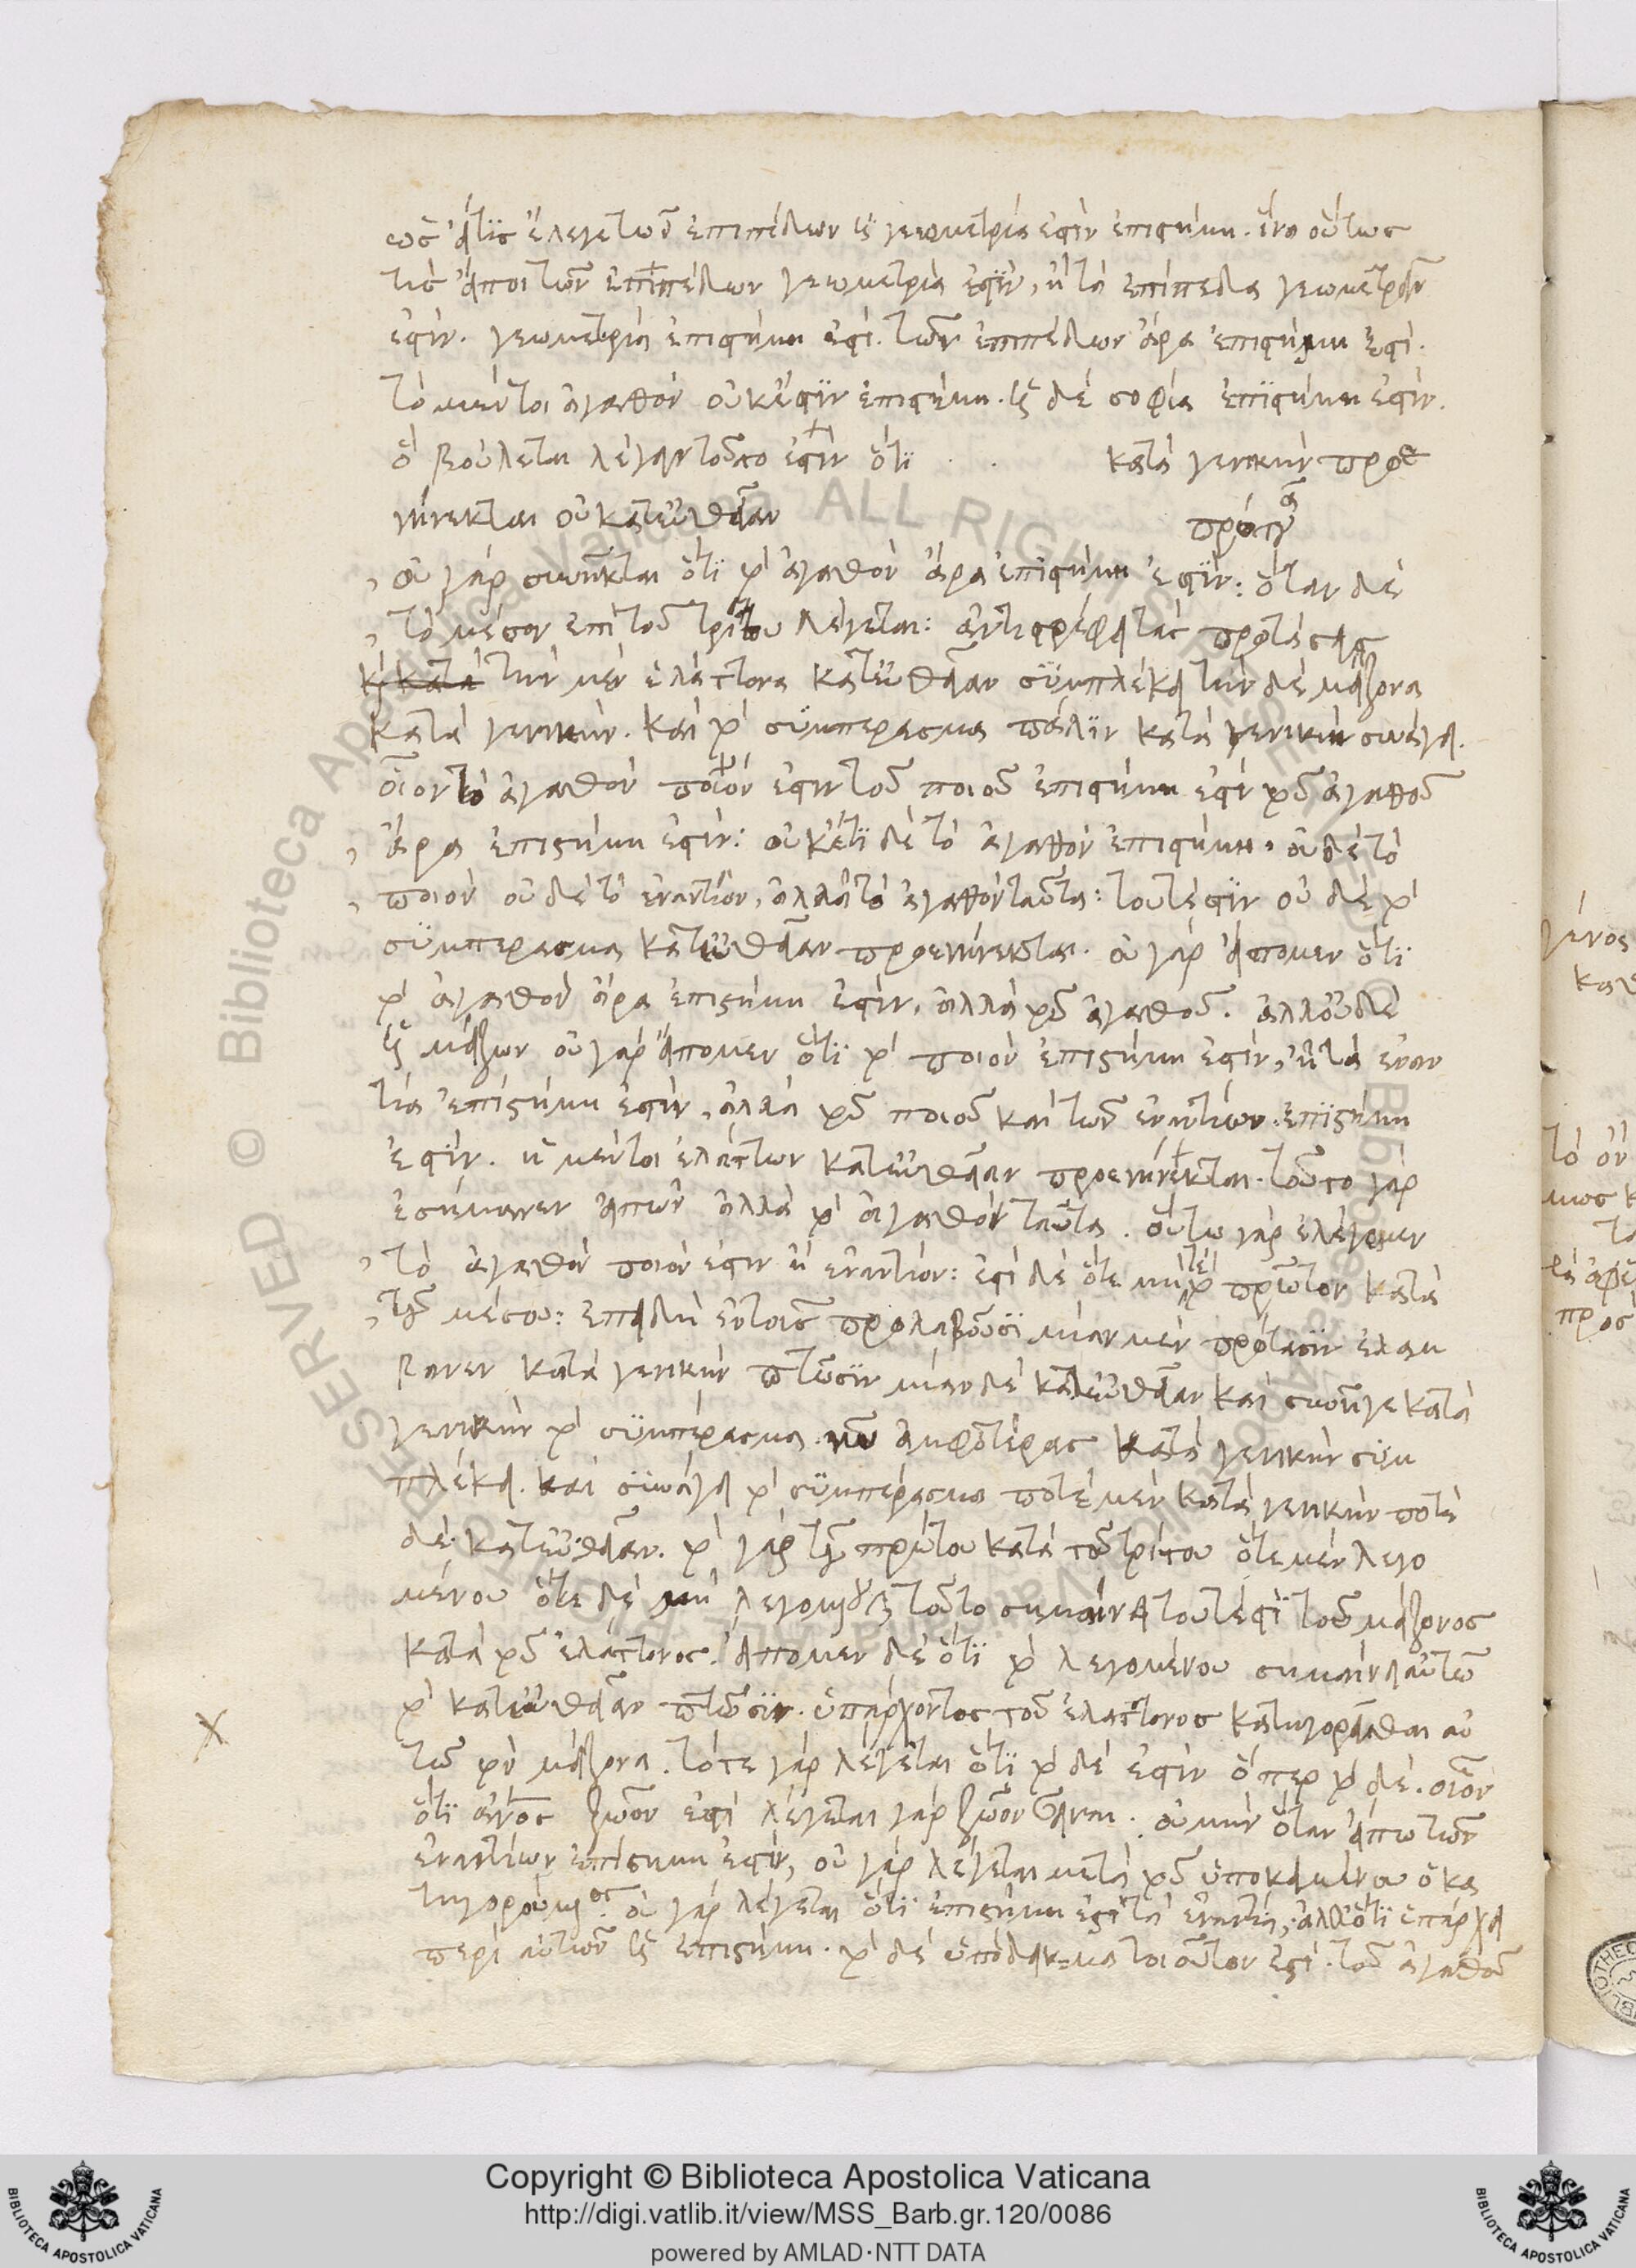 ὡς εἴ τις ἔλεγε τῶν ἐπιπέδων ἡ γεωμετρία ἐστὶν ἐπιστήμη. ἵνα οὕτως
τις εἴποι τῶν ἐπιπέδων γεωμετρία ἐστὶν, ἢ τὰ ἐπίπεδα γεωμετρεῖν
ἐστίν. γεωμετρία ἐπιστήμη ἐστί. τῶν ἐπιπέδων ἄρα ἐπιστήμη ἐστί.
τὸ μέντοι ἀγαθὸν οὐκ ἔστιν ἐπιστήμη. ἡ δὲ σοφία ἐπιστήμη ἐστίν.
ὃ βούλεται λέγειν τοῦτο ἐστὶν ὅτι . . κατὰ γενικὴν προε
νήνεκται οὐ κατ' εὐθεῖαν πρότασις
οὐ γὰρ συνῆκται ὅτι τὸ ἀγαθὸν ἄρα ἐπιστήμη ἐστίν: ὅταν δὲ
τὸ μέσον ἐπὶ τοῦ τρίτου λέγεται: ἀντιστρέφει τὰς προτάσεις
καὶ κατὰ τὴν μὲν ἐλάττονα κατ' εὐθεῖαν συμπλέκει τὴν δὲ μείζονα
κατὰ γενικήν. καὶ τὸ συμπέρασμα πάλιν κατὰ γενικὴν συνάγει.
οἷον τὸ ἀγαθὸν ποιόν ἐστιν τοῦ ποιοῦ ἐπιστήμη ἐστὶ τοῦ ἀγαθοῦ
ἄρα ἐπιστήμη ἐστίν: οὐκέτι δὲ τὸ ἀγαθὸν ἐπιστήμη, οὐδὲ τὸ
ποιὸν οὐδὲ τὸ ἐναντίον, ἀλλὰ τὸ ἀγαθὸν ταῦτα: τουτέστιν οὐδὲ τὸ
συμπέρασμα κατ' εὐθεῖαν προενήνεκται. οὐ γὰρ εἴπομεν ὅτι
τὸ ἀγαθὸν ἄρα ἐπιστήμη ἐστίν, ἀλλὰ τοῦ ἀγαθοῦ. ἀλλ' οὐδὲ
ἡ μείζων οὐ γὰρ εἴπομεν ὅτι τὸ ποιὸν ἐπιστήμη ἐστίν, ἢ τὰ ἐναν
τία ἐπιστήμη ἐστίν, ἀλλὰ τοῦ ποιοῦ καὶ τῶν ἐναντίων. ἐπιστήμη
ἐστίν. ἡ μέντοι ἐλάττων κατ' εὐθεῖαν προενήνεκται. τοῦτο γὰρ
ἐσήμανεν εἰπὼν ἀλλὰ τὸ ἀγαθὸν ταῦτα. οὕτω γὰρ ἐλέγομεν
τὸ ἀγαθὸν ποιόν ἐστιν ἢ ἐναντίον: ἔστι δὲ ὅτε μήτε τὸ πρῶτον κατὰ
τοῦ μέσου: ἐπειδὴ ἐν τοῖς προλαβοῦσι μίαν μὲν πρότασιν ἐλάμ
βανεν κατὰ γενικὴν πτῶσιν μίαν δὲ κατ' εὐθεῖαν καὶ συνῆγε κατὰ
γενικὴν τὸ συμπέρασμα. νῦν ἀμφοτέρας κατὰ γενικὴν συμ
πλέκει. καὶ συνάγει τὸ συμπέρασμα ποτὲ μὲν κατὰ γενικὴν ποτὲ
δὲ κατ' εὐθεῖαν. τὸ γὰρ τοῦ πρώτου κατὰ τοῦ τρίτου ὁτὲ μὲν λεγο
μένου ὁτὲ δὲ μὴ λεγομένου τοῦτο σημαίνει τουτέστι τοῦ μείζονος
κατὰ τοῦ ἐλάττονος. εἴπομεν δὲ ὅτι τὸ λεγομένου σημαίνει αὐτῷ
τὸ κατ' εὐθεῖαν πτῶσιν. ὑπάρχοντος τοῦ ἐλάττονος κατηγορεῖσθαι αὐ
τῷ τὸν μείζονα. τότε γὰρ λέγεται ὅτι τὸ δὲ ἐστὶν ὅπερ τὸ δέ. οἷον
ὅτι ἄνθρωπος ζῷον ἐστὶ λέγεται γὰρ ζῷον εἶναι. οὐ μὴν ὅταν εἴπω τῶν
ἐναντίων ἐπιστήμη ἐστίν, οὐ γὰρ λέγεται μετὰ τοῦ ὑποκειμένου ὁ κα
τηγορούμενος. οὐ γὰρ λέγεται ὅτι ἐπιστήμη ἐστὶ τὰ ἐναντία, ἀλλ' ὅτι ὑπάρχει
περὶ αὐτῶν ἡ ἐπιστήμη. τὸ δὲ ὑπόδειγμα τοιοῦτον ἐστί. τοῦ ἀγαθοῦ
Copyright © Biblioteca Apostolica Vaticana
http://digi.vatlib.it/view/MSS_Barb.gr.120/0086
powered by AMLAD·NTT DATA